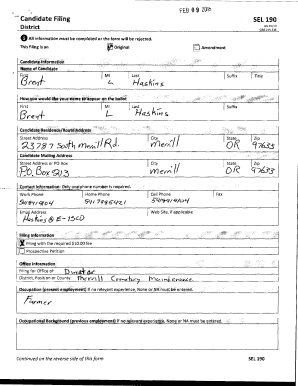 FEB 09
Candidate Filing SEL 190
District
All information must be completed or the form will be rejected.
This filing is an Original Amendment
Candidate Information
Name of Candidate
First MI Last Suffix Title
Brent L Haskins
How you would like your name to appear on the ballot
First MI Last Suffix
Brent L Haskins
Candidate Residence/Route Address
Street Address City State Zip
23787 South Merrill Rd. Merrill OR 97633
Candidate Mailing Address
Street Address or PO Box City State Zip
P.O. Box 213 Merrill OR 97633
Contact Information: Only one phone number is required.
Work Phone Home Phone Cell Phone Fax
Email Address Web Site, if applicable
Haskins@E-ISCO
Filing Information
X Filing with the required $10.00 fee
Prospective Petition
Office Information
Filing for Office of: Director
District, Position or County: Merrill Cemetery Maintenance
Occupation (present employment) If no relevant experience, None or NA must be entered.
Farmer
Occupational Background (previous employment) If no relevant experience, None or NA must be entered.
Continued on the reverse side of this form SEL 190